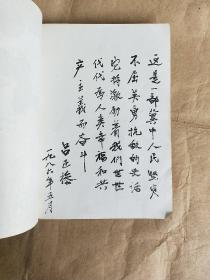 这是一部冀中人民坚贞
不屈英勇抗敌的史话
它将激励着我们世世
代代为人类幸福和共
产主义而奋斗
吕正操
一九八六年五月